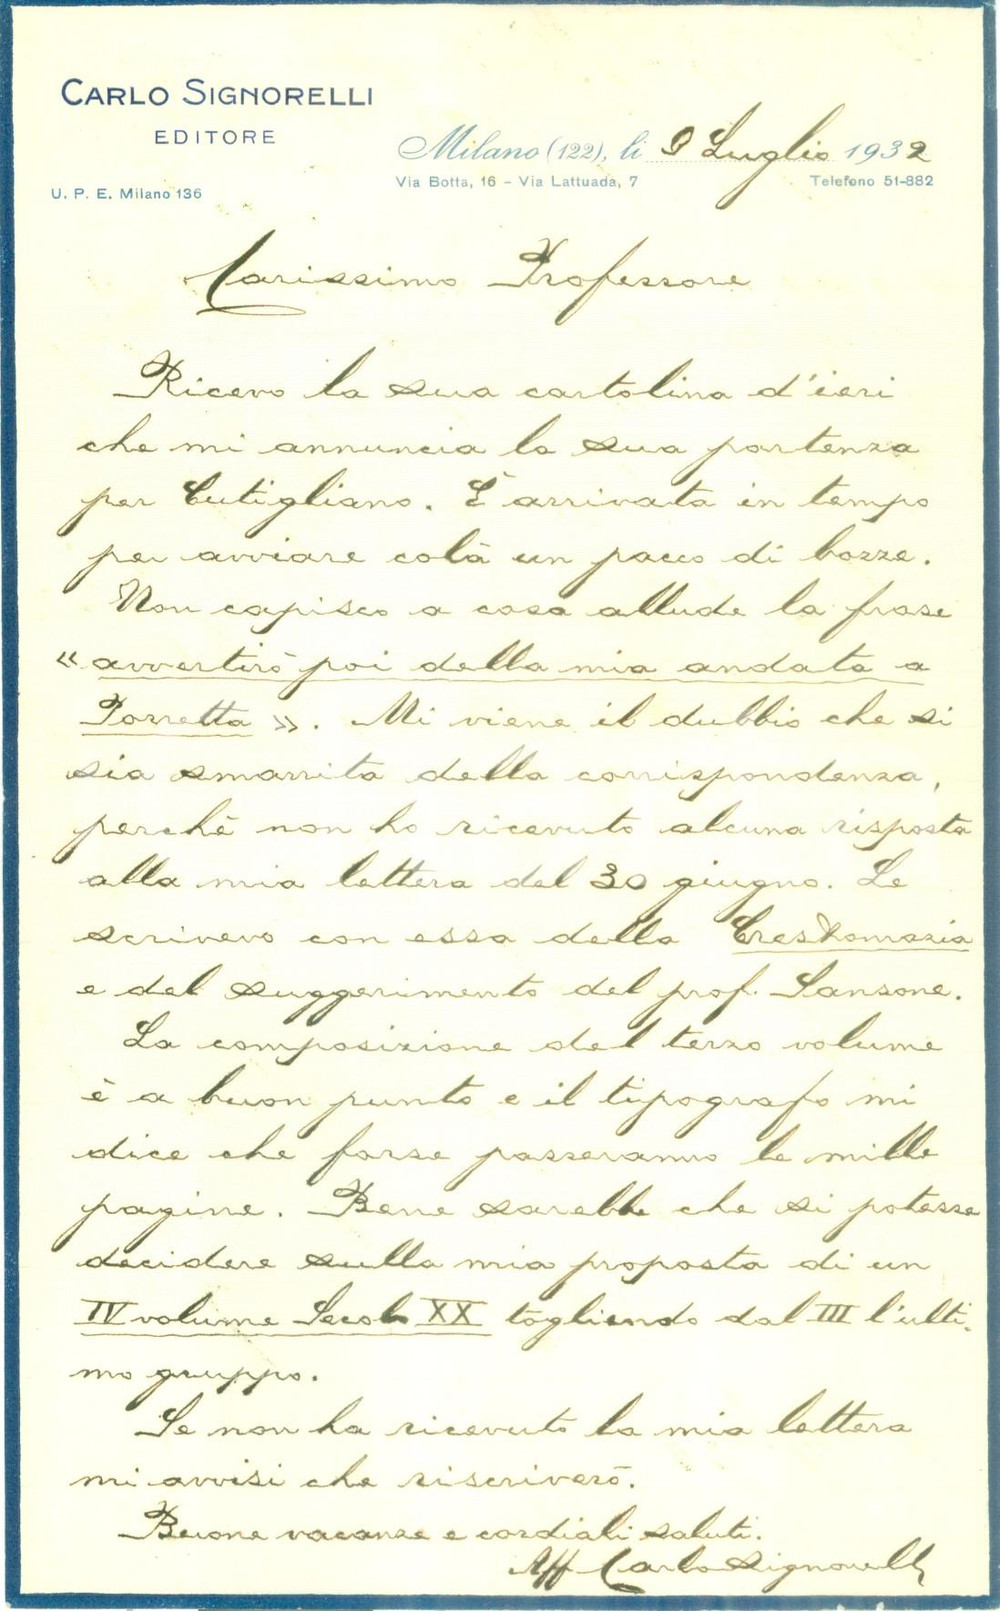 CARLO SIGNORELLI
EDITORE
U. P. E. Milano 136
Milano (122), li 9 Luglio 1932
Via Botta, 16 - Via Lattuada, 7 Telefono 51-882
Carissimo Professore
Ricevo la sua cartolina d'ieri
che mi annuncia la sua partenza
per Cutigliano. È arrivata in tempo
per avviare colà un pacco di bozze.
Non capisco a cosa allude la frase
« avvertirò poi della mia andata a
Porretta ». Mi viene il dubbio che si
sia smarrita della corrispondenza,
perchè non ho ricevuto alcuna risposta
alla mia lettera del 30 giugno. Le
scrivevo con essa della Crestomazia
e del suggerimento del prof. Sansone.
La composizione del terzo volume
è a buon punto e il tipografo mi
dice che forse passeranno le mille
pagine. Bene sarebbe che si potesse
decidere sulla mia proposta di un
IV volume Secolo XX togliendo dal III l'ulti-
mo gruppo.
Se non ha ricevuto la mia lettera
mi avvisi che riscriverò.
Buone vacanze e cordiali saluti.
Aff Carlo Signorelli